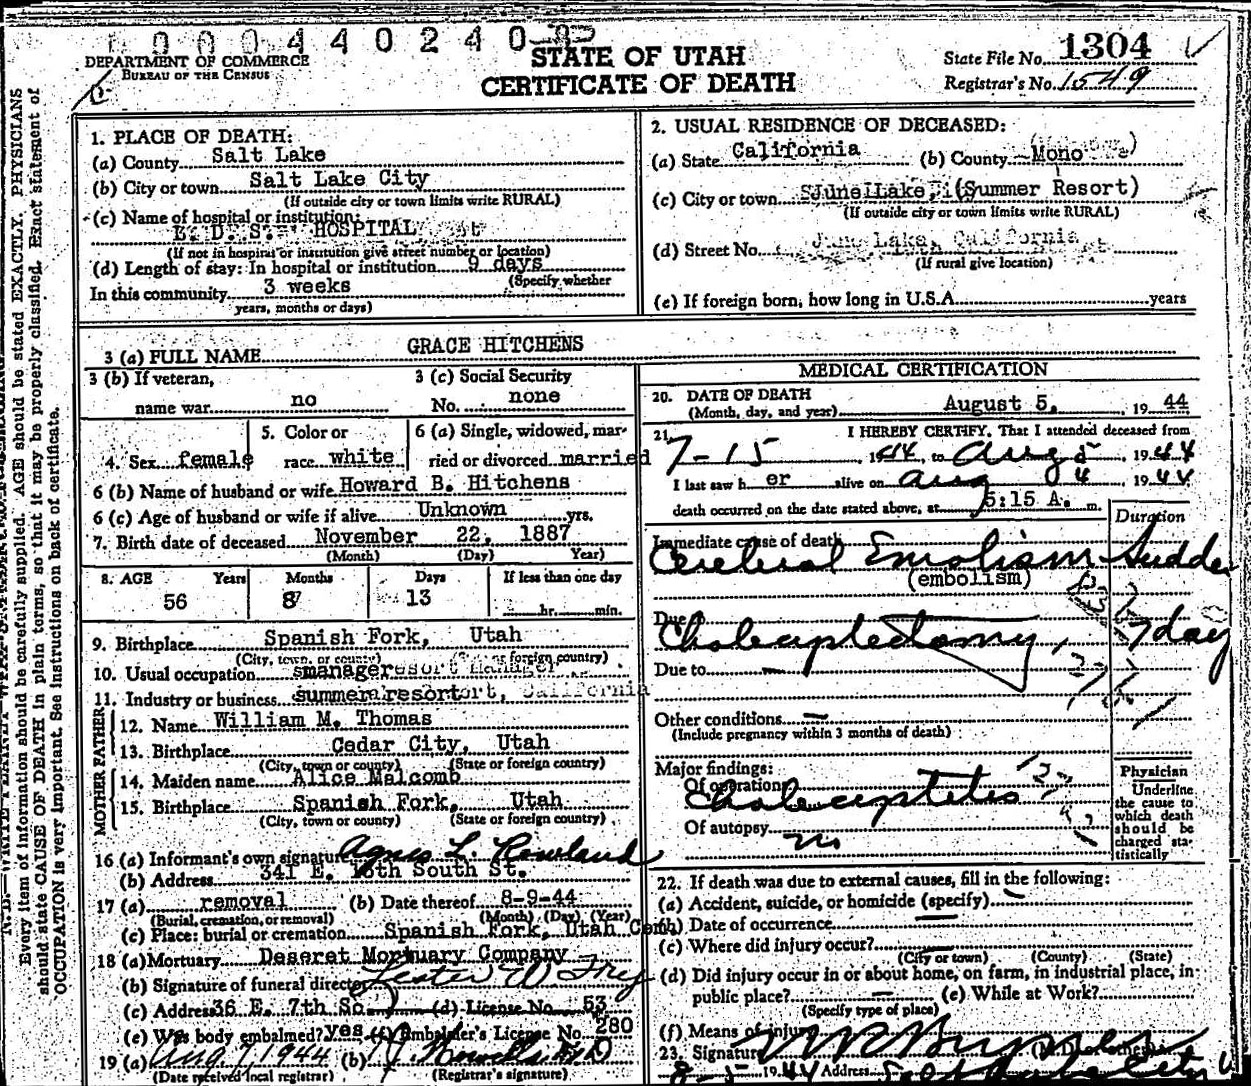 0 0 0 4 4 0 2 4 0
DEPARTMENT OF COMMERCE
BUREAU OF THE CENSUS
STATE OF UTAH
CERTIFICATE OF DEATH
State File No. 1304
Registrar's No. 1549
Every item of information should be carefully supplied. AGE should be stated EXACTLY. PHYSICIANS
should state CAUSE OF DEATH in plain terms, so that it may be properly classified. Exact statement of
OCCUPATION is very important. See instructions on back of certificate.
1. PLACE OF DEATH:
(a) County Salt Lake
(b) City or town Salt Lake City
(If outside city or town limits write RURAL)
(c) Name of hospital or institution:
L. D. S. HOSPITAL
(If not in hospital or institution give street number or location)
(d) Length of stay: In hospital or institution 9 days
(Specify whether
In this community 3 weeks
years, months or days)
2. USUAL RESIDENCE OF DECEASED:
(a) State California (b) County Mono
(c) City or town June Lake, (Summer Resort)
(If outside city or town limits write RURAL)
(d) Street No. June Lake, California
(If rural give location)
(e) If foreign born, how long in U.S.A. years
3 (a) FULL NAME GRACE HITCHENS
3 (b) If veteran, name war no
3 (c) Social Security No. none
4. Sex female
5. Color or race white
6 (a) Single, widowed, married or divorced married
6 (b) Name of husband or wife Howard B. Hitchens
6 (c) Age of husband or wife if alive Unknown yrs.
7. Birth date of deceased November 22, 1887
(Month) (Day) Year)
8. AGE Years Months Days If less than one day
56 8 13 hr. min.
9. Birthplace Spanish Fork, Utah
(City, town, or county) foreign country)
10. Usual occupation manager
11. Industry or business summer resort
FATHER
12. Name William M. Thomas
13. Birthplace Cedar City, Utah
(City, town or county) (State or foreign country)
MOTHER
14. Maiden name Alice Malcomb
15. Birthplace Spanish Fork, Utah
(City, town or county) (State or foreign country)
16 (a) Informant's own signature Agnes L. Rowland
(b) Address 341 E. South St.
17 (a) removal (b) Date thereof 8-9-44
(Burial, cremation, or removal) (Month) (Day) (Year)
(c) Place: burial or cremation Spanish Fork, Utah Cem.
18 (a) Mortuary Deseret Mortuary Company
(b) Signature of funeral director Lester
(c) Address 36 E. 7th So. (d) License No. 53
(e) Was body embalmed? yes (f) Embalmer's License No. 280
19 (a) Aug 7, 1944 (b)
(Date received local registrar) (Registrar's signature)
MEDICAL CERTIFICATION
20. DATE OF DEATH
(Month, day, and year) August 5, 19 44
21. I HEREBY CERTIFY, That I attended deceased from
7-15 1944, to Aug 5 1944
I last saw her alive on Aug 4 1944
death occurred on the date stated above, at 5:15 A. m.
Duration
Immediate cause of death
Cerebral Emolism Sudden
(embolism)
Due to
Cholecystectomy, 7 day
Due to —
Other conditions —
(Include pregnancy within 3 months of death)
Major findings:
Of operation Cholecystitis
Of autopsy no
Physician
Underline
the cause to
which death
should be
charged sta-
tistically
22. If death was due to external causes, fill in the following:
(a) Accident, suicide, or homicide (specify) —
(b) Date of occurrence —
(c) Where did injury occur? —
(City or town) (County) (State)
(d) Did injury occur in or about home, on farm, in industrial place, in
public place? — (e) While at Work?
(Specify type of place)
(f) Means of injury
23. Signature
8-5 1944 Address Salt Lake City U